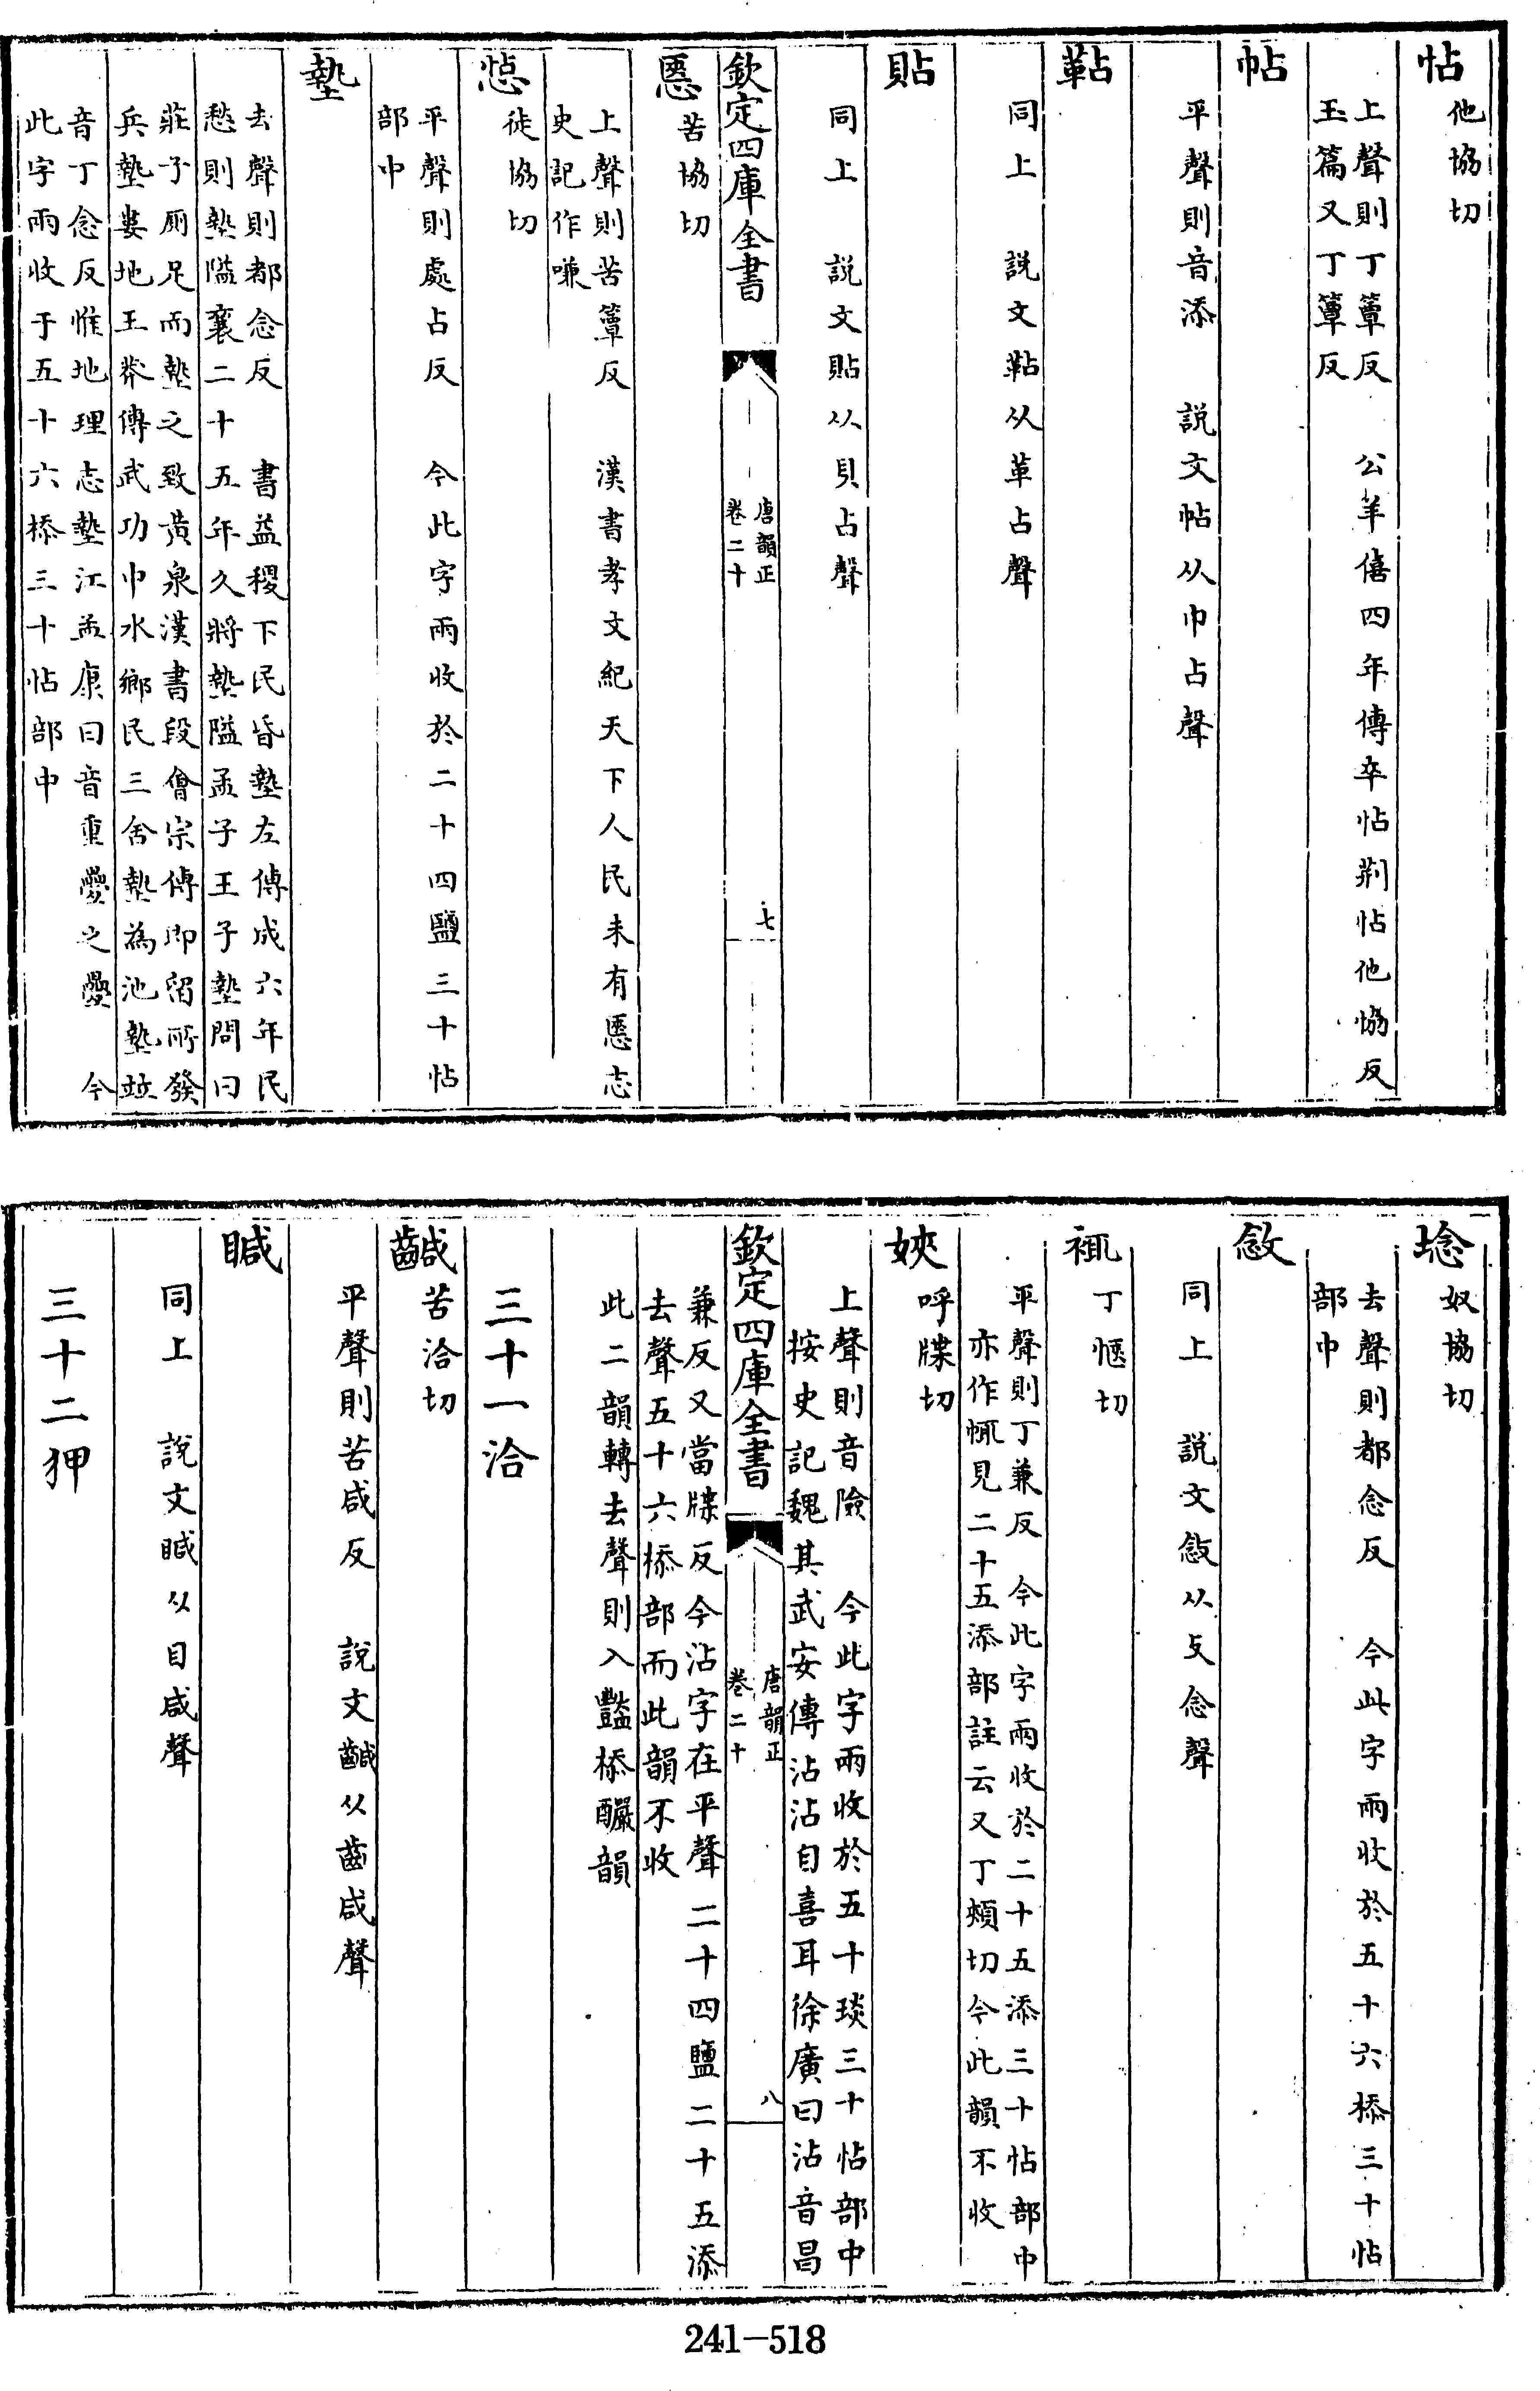 怗 他協切
上聲則丁簟反 公羊僖四年傳卒怗荆怗他協反
玉篇又丁簟反
帖
平聲則音添 説文帖从巾占聲
鞊
同上 説文鞊从革占聲
貼
同上 説文貼从貝占聲
欽定四庫全書 唐韻正 卷二十 七
㥦 苦協切
上聲則苦簟反 漢書孝文紀天下人民未有㥦志
史記作嗛
惉 徒協切
平聲則處占反 今此字兩收於二十四鹽三十怗
部中
墊
去聲則都念反 書益稷下民昏墊左傳成六年民
愁則墊隘襄二十五年久將墊隘孟子王子墊問曰
莊子厠足而墊之致黄泉漢書段㑹宗傳即留所發
兵墊婁地王莽傳武功中水鄉民三舍墊為池墊竝
音丁念反惟地理志墊江孟康曰音重疊之疊 今
此字兩收于五十六㮇三十怗部中
埝 奴協切
去聲則都念反 今此字兩收於五十六㮇三十怗
部中
敜
同上 説文敜从攴念聲
丁愜切
平聲則丁兼反 今此字兩收於二十五添三十怗部中
亦作㡇見二十五添部註云又丁頰切今此韻不收
㛍 呼牒切
上聲則音險 今此字兩收於五十琰三十怗部中
按史記魏其武安傳沾沾自喜耳徐廣曰沾音昌
欽定四庫全書 唐韻正 卷二十 八
兼反又當牒反今沾字在平聲二十四鹽二十五添
去聲五十六㮇部而此韻不收
此二韻轉去聲則入豔㮇釅韻
三十一洽
鹹 苦洽切
平聲則苦咸反 説文𪘁从齒咸聲
䁍
同上 説文䁍从目咸聲
三十二狎
241—518